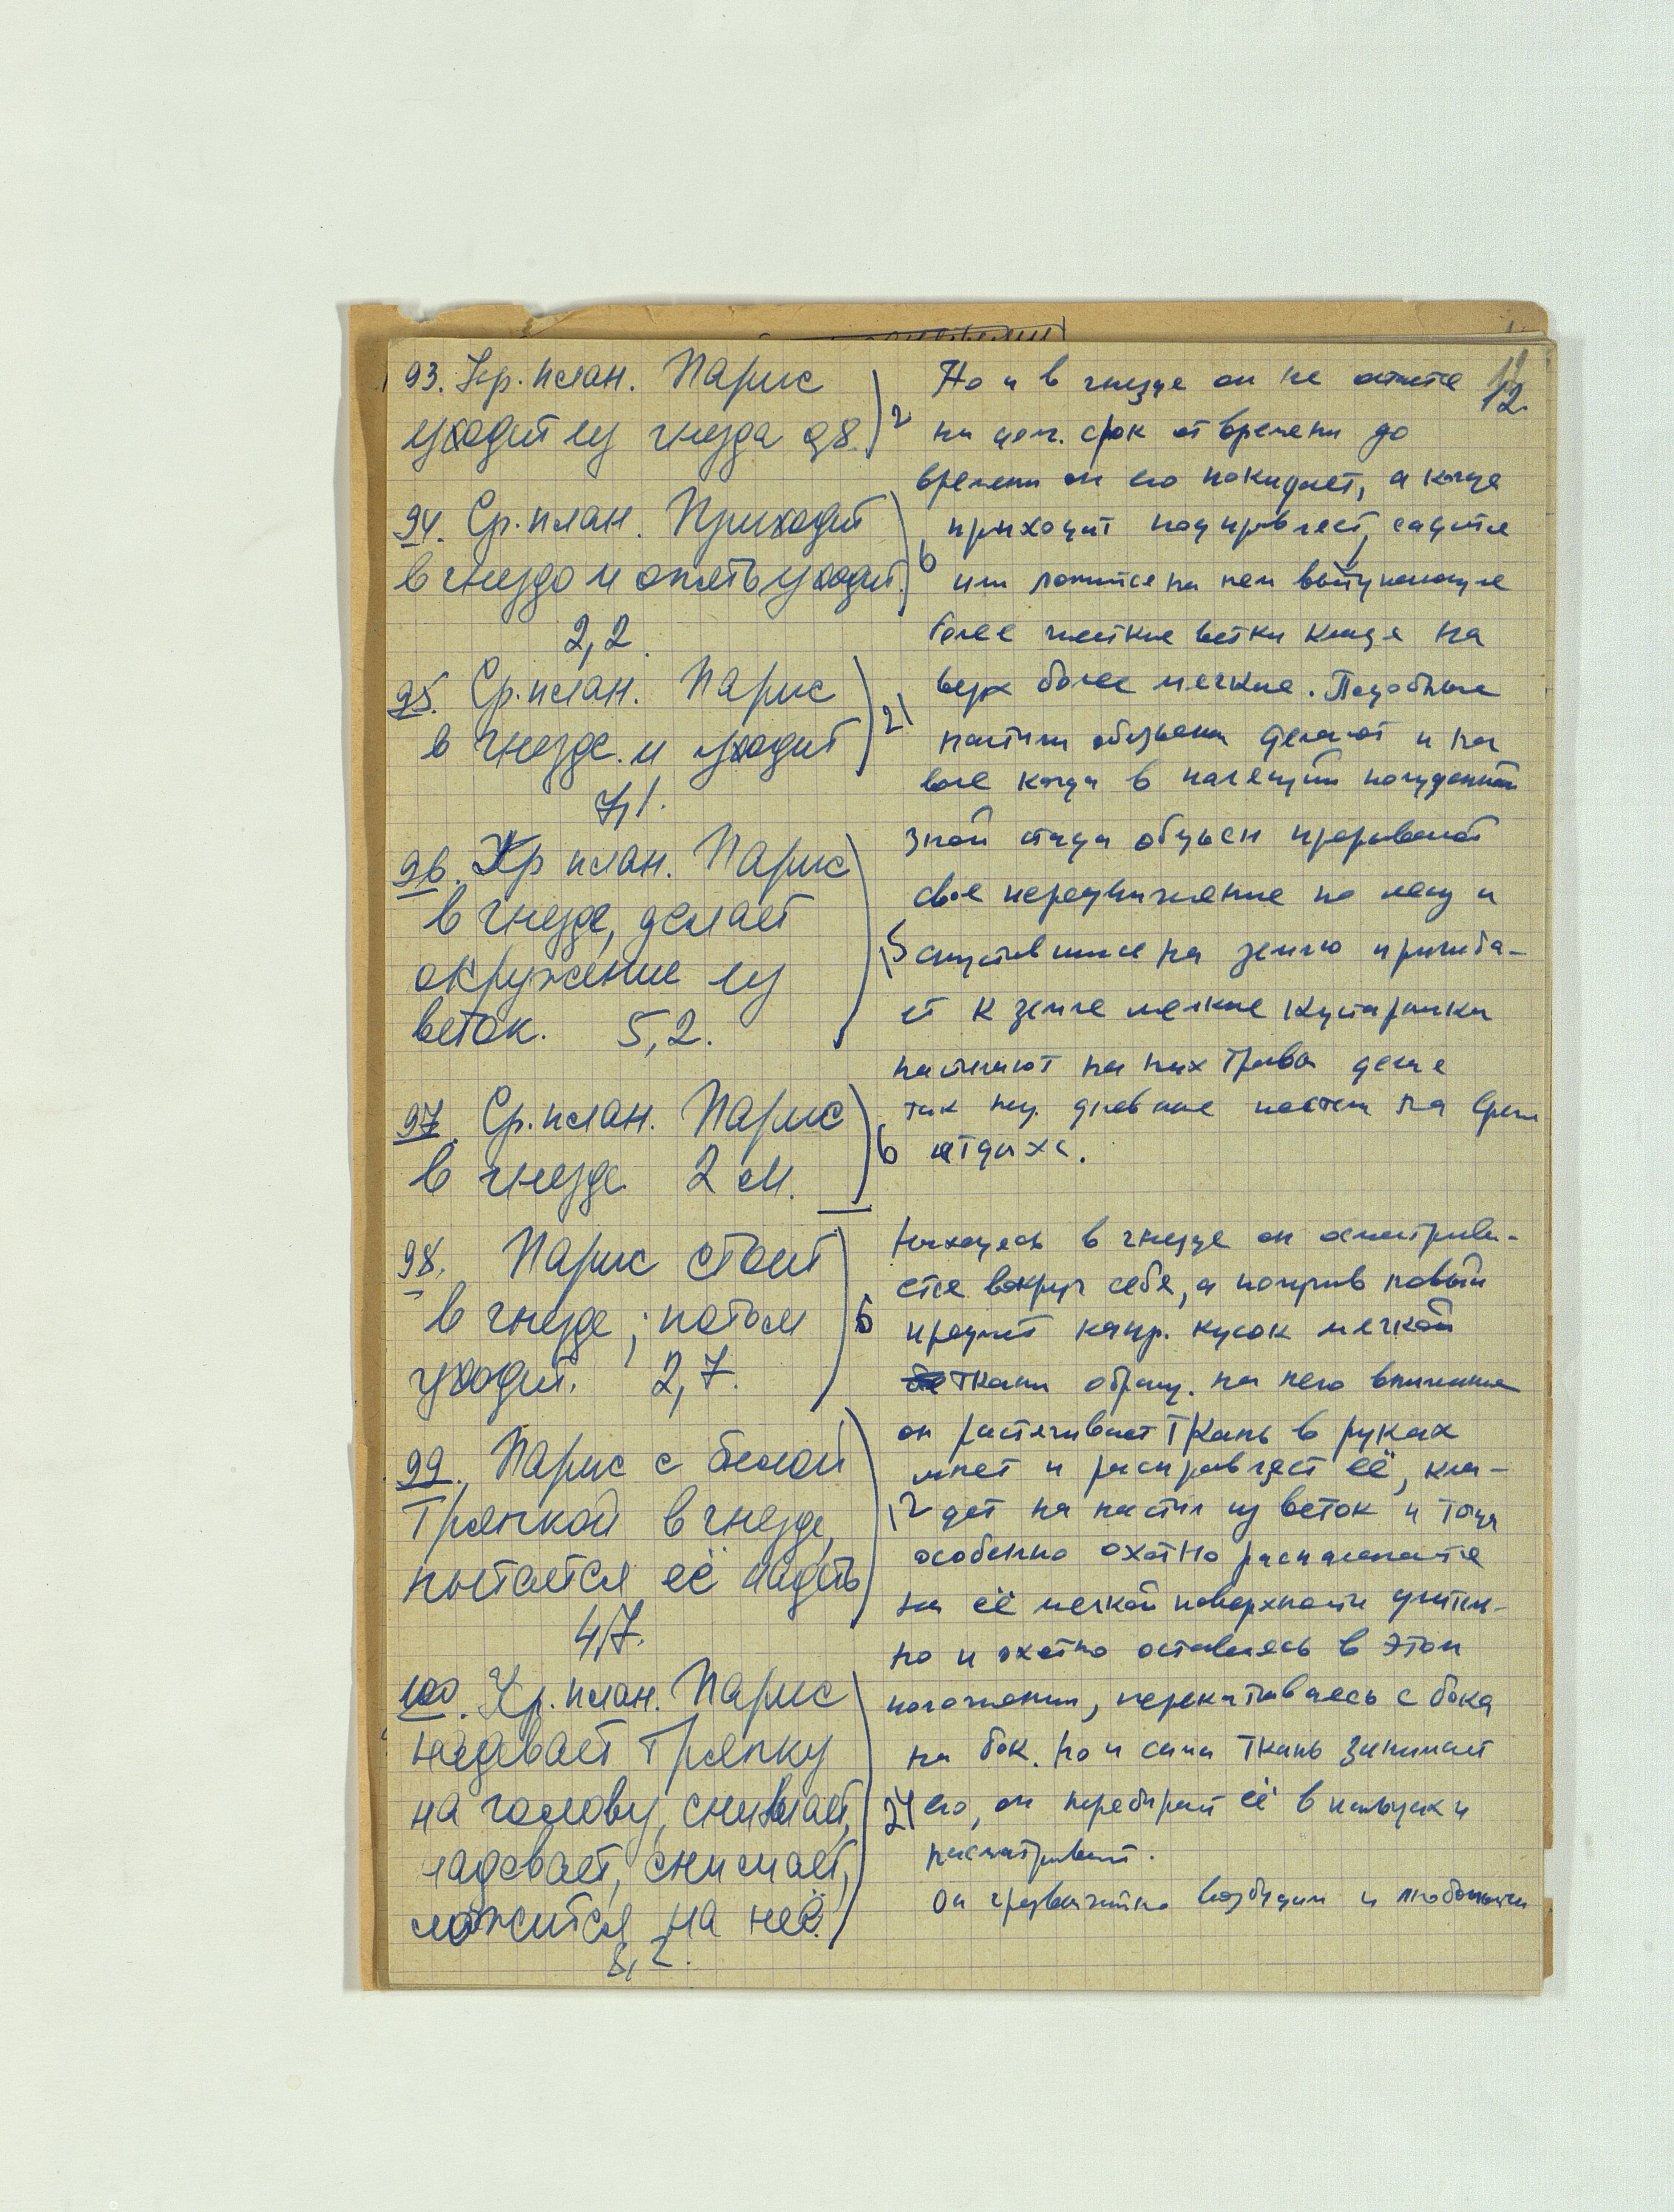 12.
93. Кр. план. Парис
уходит из гнезда 0,8.
94. Ср. план. Приходит
в гнездо и опять уходит.
2,2.
95. Ср. план. Парис
в гнезде и уходит
7,1.
96. Кр план. Парис
в гнезде, делает
окружение из
веток. 5,2.
97. Ср. план. Парис
в гнезде 2 м.
98. Парис стоит
в гнезде; потом
уходит. 2,7.
99. Парис с белой
тряпкой в гнезде,
пытается её надеть
4,7.
100. Кр. план. Парис
надевает тряпку
на голову, снимает,
надевает, снимает,
ложится на неё.
8,2.
2
6
21
15
6
6
12
24
Но и в гнезде он не остается
на срок от времени до
времени он его покидает, а когда
приходит подправляет, садится
или ложится на нем
более жесткие ветки кладя на
верх более мягкие. Подобные
настилы обезьяны делают и на
воле когда в палящий полуденный
зной стада обезьян прерывают
свое передвижение по лесу и
спустившись на землю пригиба-
ет к земле мелкие кустарники
настилают на них травы делая
так наз. дневные постели на время
отдыха.
Находясь в гнезде он осматрива-
ется вокруг себя, а получив новый
предмет напр. кусок мягкой
ткани обращ. на него внимание
он растягивает ткань в руках
мнет и расправляет её, кла-
дет на настил из веток и тогда
особенно охотно располагается
на её мягкой поверхности длитель-
но и охотно оставаясь в этом
положении, перекатываясь с бока
на бок. Но и сама ткань занимает
его, он перебирает её в пальцах и
рассматривает.
Он чрезвычайно возбудим и любопытен